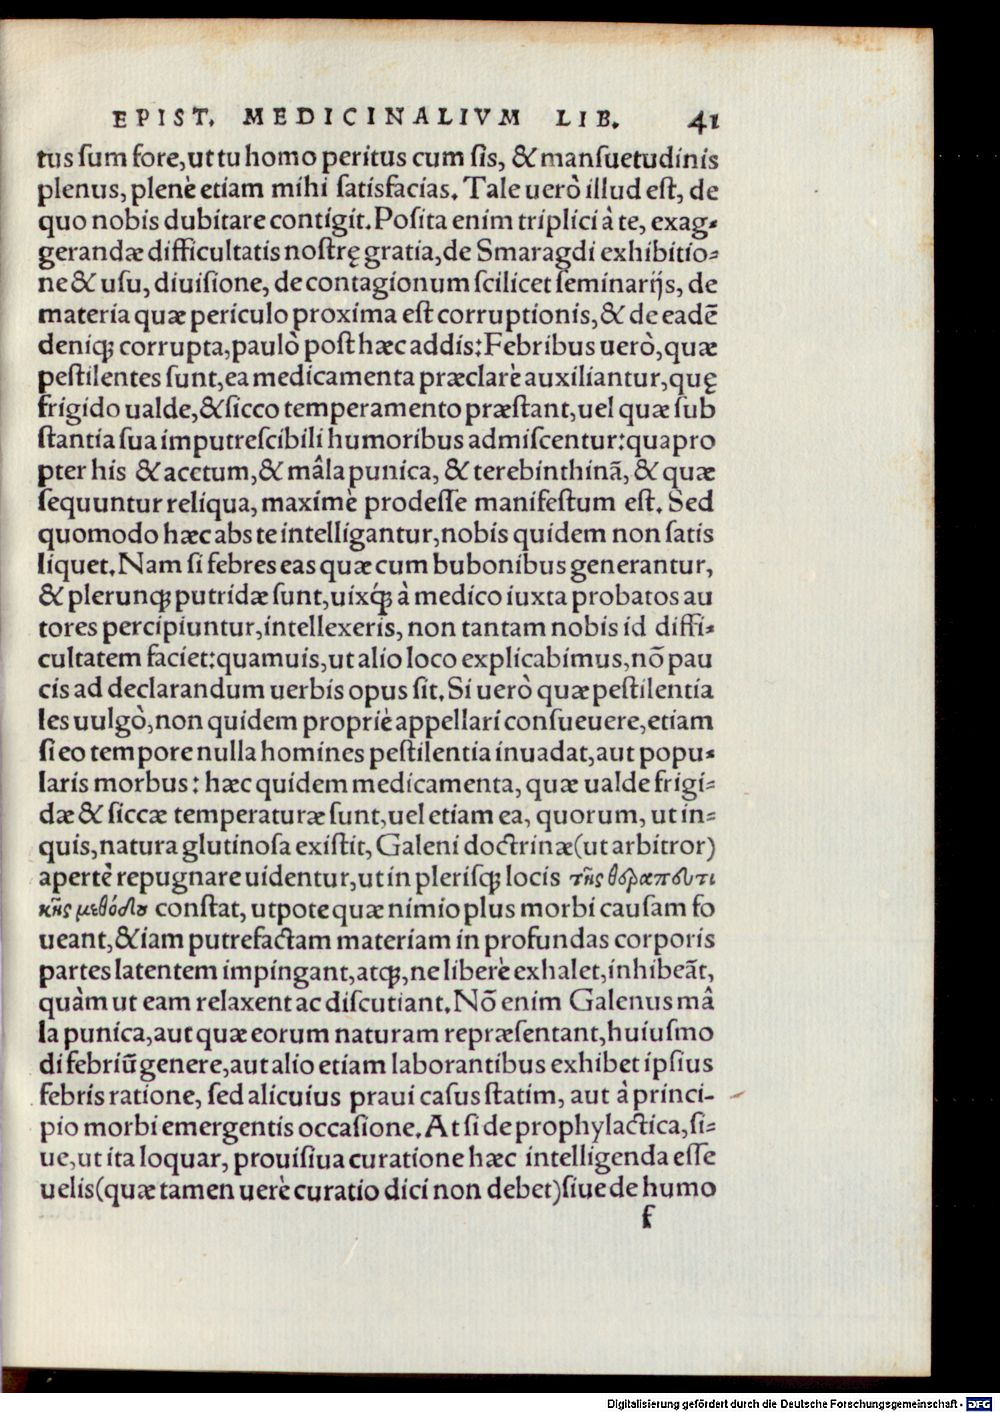 EPIST. MEDICINALIVM LIB. 41
tus ſum fore, ut tu homo peritus cum ſis, & manſuetudinis
plenus, plenè etiam mihi ſatisfacias. Tale uerò illud eſt, de
quo nobis dubitare contigit. Poſita enim triplici à te, exag-
gerandæ difficultatis noſtrę gratia, de Smaragdi exhibitio-
ne & uſu, diuiſione, de contagionum ſcilicet ſeminarijs, de
materia quæ periculo proxima eſt corruptionis, & de eadē
deniqꝫ corrupta, paulò poſt hæc addis: Febribus uerò, quæ
peſtilentes ſunt, ea medicamenta præclarè auxiliantur, quę
frigido ualde, & ſicco temperamento præſtant, uel quæ ſub
ſtantia ſua imputreſcibili humoribus admiſcentur: quapro
pter his & acetum, & mâla punica, & terebinthinā, & quæ
ſequuntur reliqua, maximè prodeſſe manifeſtum eſt. Sed
quomodo hæc abs te intelligantur, nobis quidem non ſatis
liquet. Nam ſi febres eas quæ cum bubonibus generantur,
& plerunqꝫ putridæ ſunt, uixqꝫ́ à medico iuxta probatos au
tores percipiuntur, intellexeris, non tantam nobis id diffi-
cultatem faciet: quamuis, ut alio loco explicabimus, nō pau
cis ad declarandum uerbis opus ſit. Si uerò quæ peſtilentia
les uulgò, non quidem propriè appellari conſueuere, etiam
ſi eo tempore nulla homines peſtilentia inuadat, aut popu-
laris morbus: hæc quidem medicamenta, quæ ualde frigi-
dæ & ſiccæ temperaturæ ſunt, uel etiam ea, quorum, ut in-
quis, natura glutinoſa exiſtit, Galeni doctrinæ (ut arbitror)
apertè repugnare uidentur, ut in pleriſqꝫ locis τῆς θεραπευτι
κῆς μεθόδου conſtat, utpote quæ nimio plus morbi cauſam fo
ueant, & iam putrefactam materiam in profundas corporis
partes latentem impingant, atqꝫ, ne liberè exhalet, inhibeāt,
quàm ut eam relaxent ac diſcutiant. Nō enim Galenus mâ
la punica, aut quæ eorum naturam repræſentant, huiuſmo
di febriū genere, aut alio etiam laborantibus exhibet ipſius
febris ratione, ſed alicuius praui caſus ſtatim, aut à princi-
pio morbi emergentis occaſione. At ſi de prophylactica, ſi-
ue, ut ita loquar, prouiſiua curatione hæc intelligenda eſſe
uelis (quæ tamen uerè curatio dici non debet) ſiue de humo
f
Digitalisierung gefördert durch die Deutsche Forschungsgemeinschaft - DFG